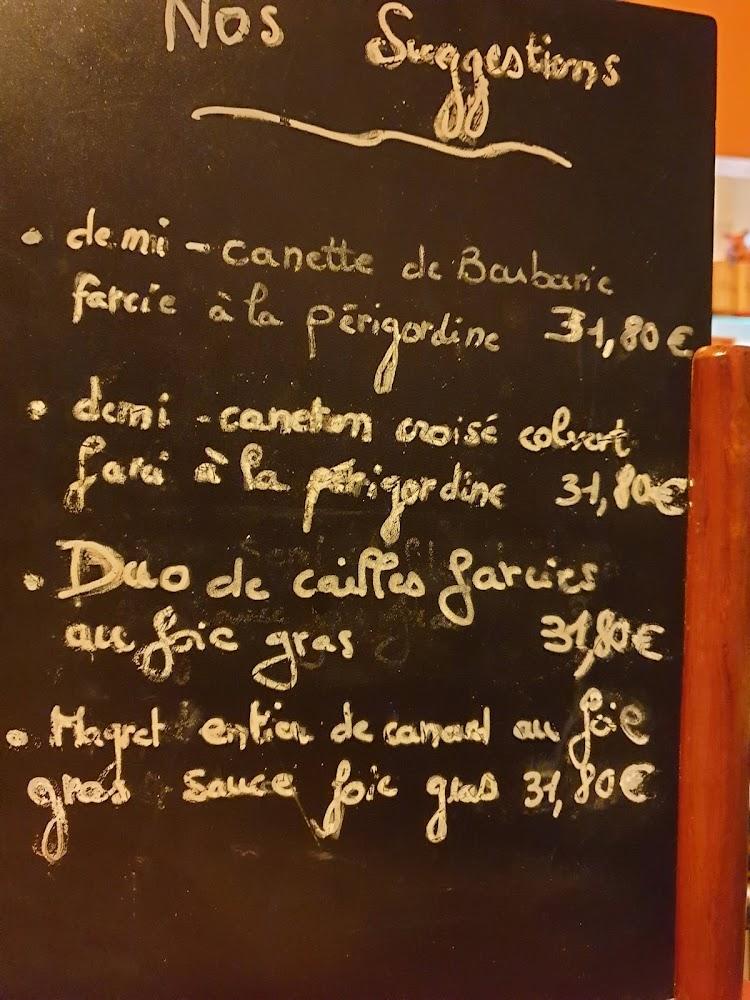 Nos Suggestions
• demi - canette de Barbarie
farcie à la périgordine 31,80 €
• demi - caneton croisé colvert
farci à la périgordine 31,80€
• Duo de cailles farcies
au foie gras 31,80€
• Magret entier de canard au foie
gras sauce foie gras 31,80€